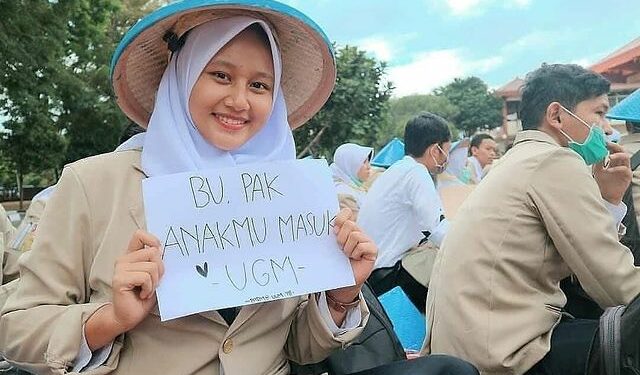 BU. PAK
ANAKMU MASUK
♥ -UGM-